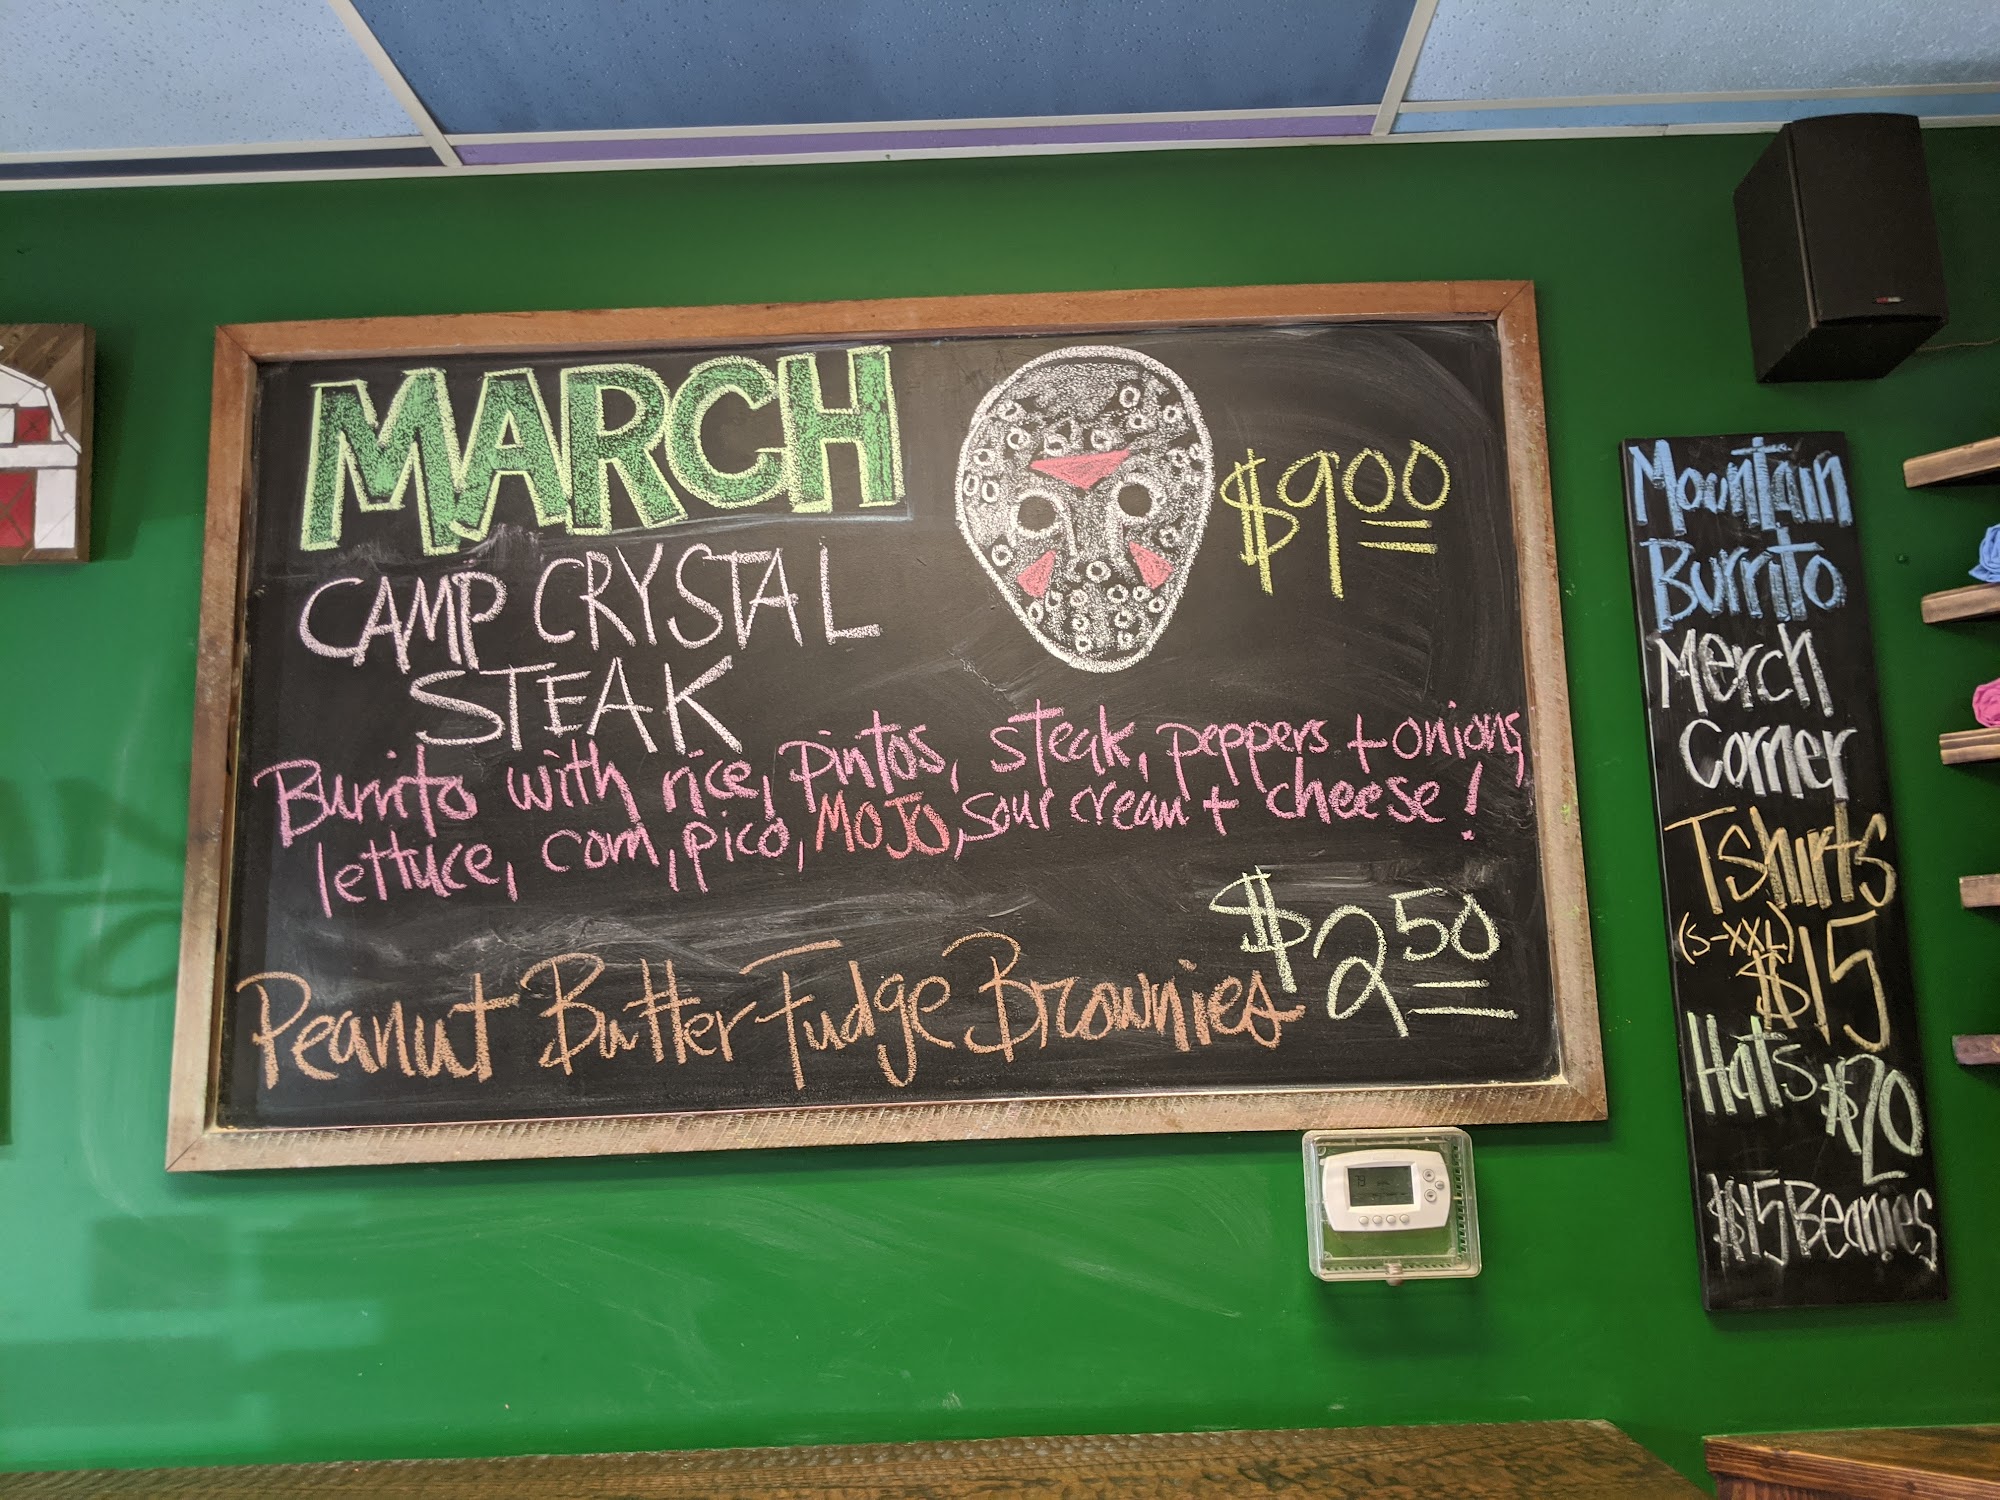 MARCH
CAMP CRYSTAL
STEAK
$9.00
Burrito with rice, pintos, steak, peppers + onions,
lettuce, corn, pico, MOJO, sour cream + cheese!
Peanut Butter Fudge Brownies
$2.50
Mountain
Burrito
Merch
Corner
Tshirts
(S-XXL)
$15
Hats $20
$15 Beanies